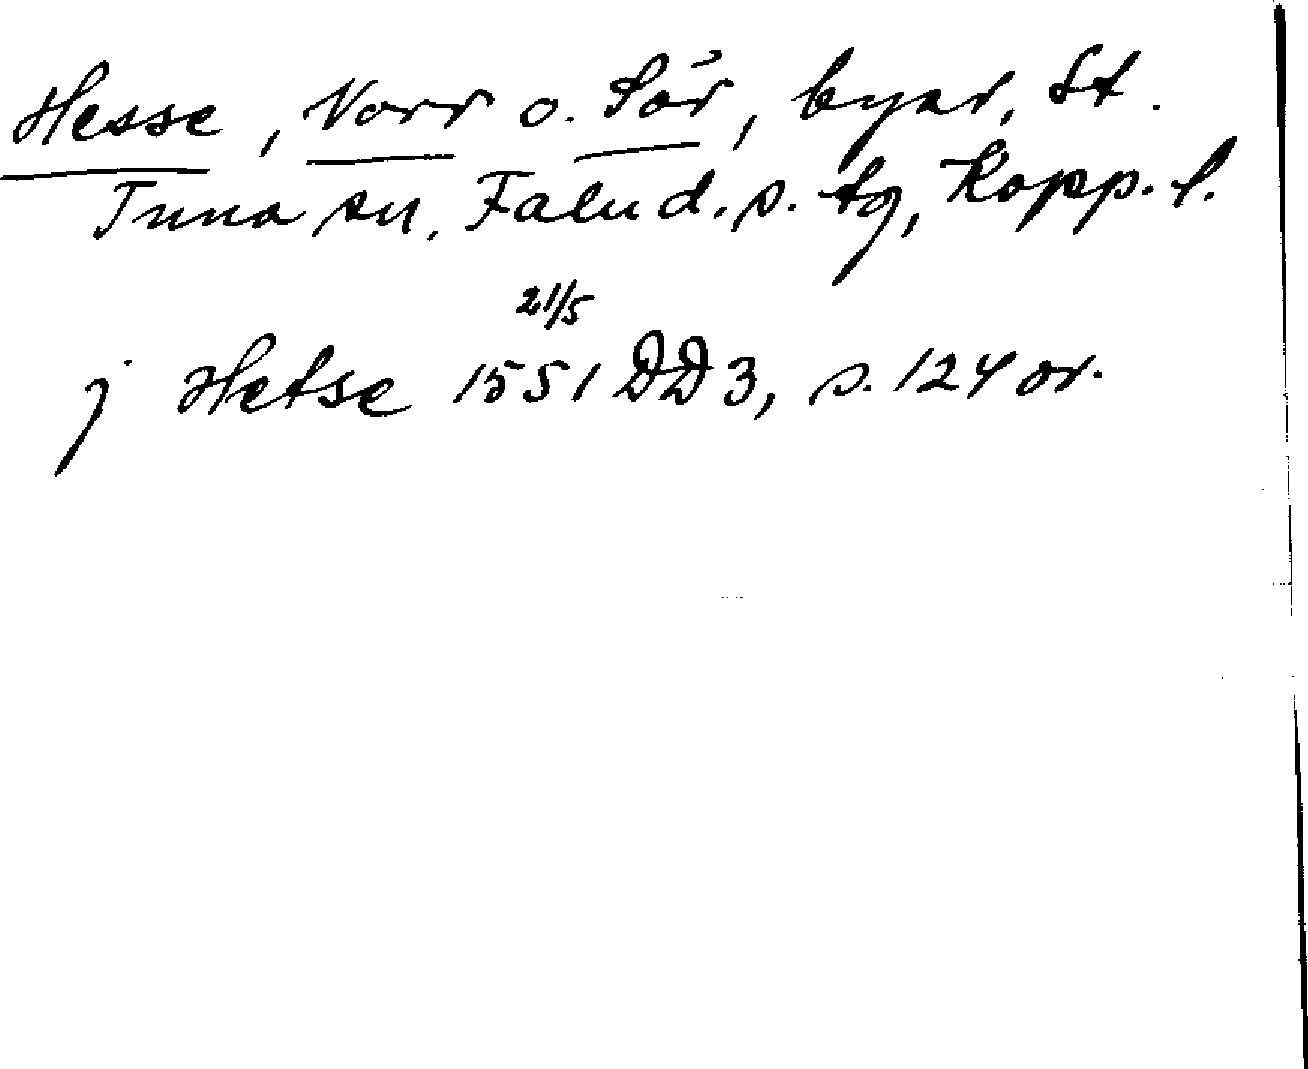 Hesse, Norr o. Sör, byar, St.
Tuna sn, Falu d. s. tg, Kopp. l.
21/5
j Hetse 1551 DD 3, s. 124 or.